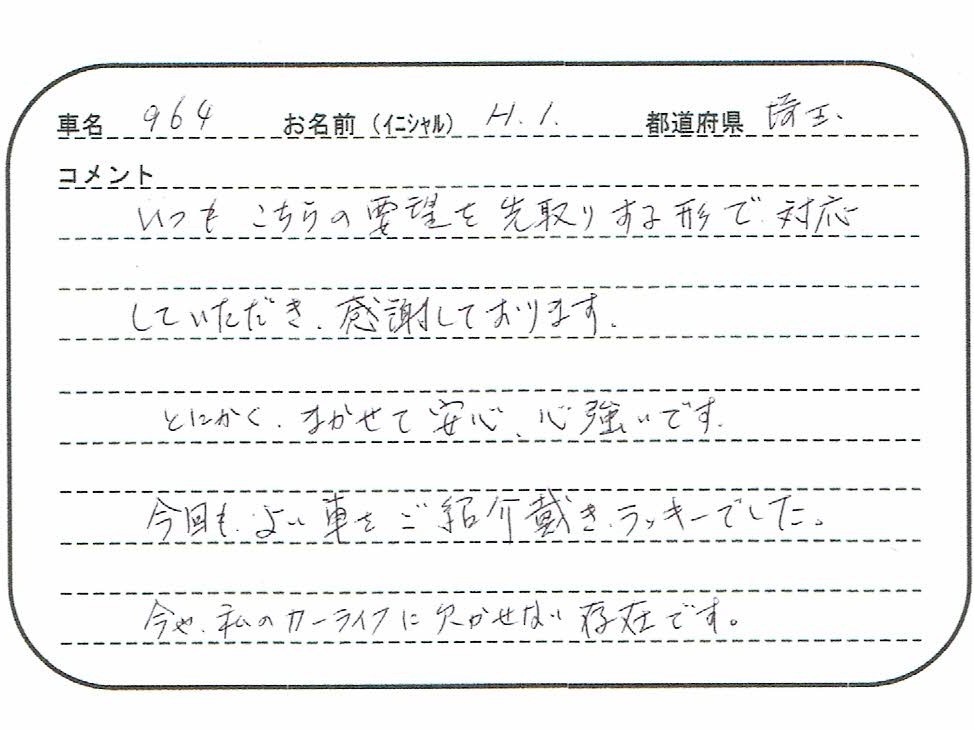 車名 964 お名前（ｲﾆｼｬﾙ） H.I. 都道府県 埼玉.
コメント
いつもこちらの要望を先取りする形で、対応
していただき、感謝しております。
とにかく、まかせて安心、心強いです。
今回も、よい車をご紹介戴き、ラッキーでした。
今や、私のカーライフに欠かせない存在です。